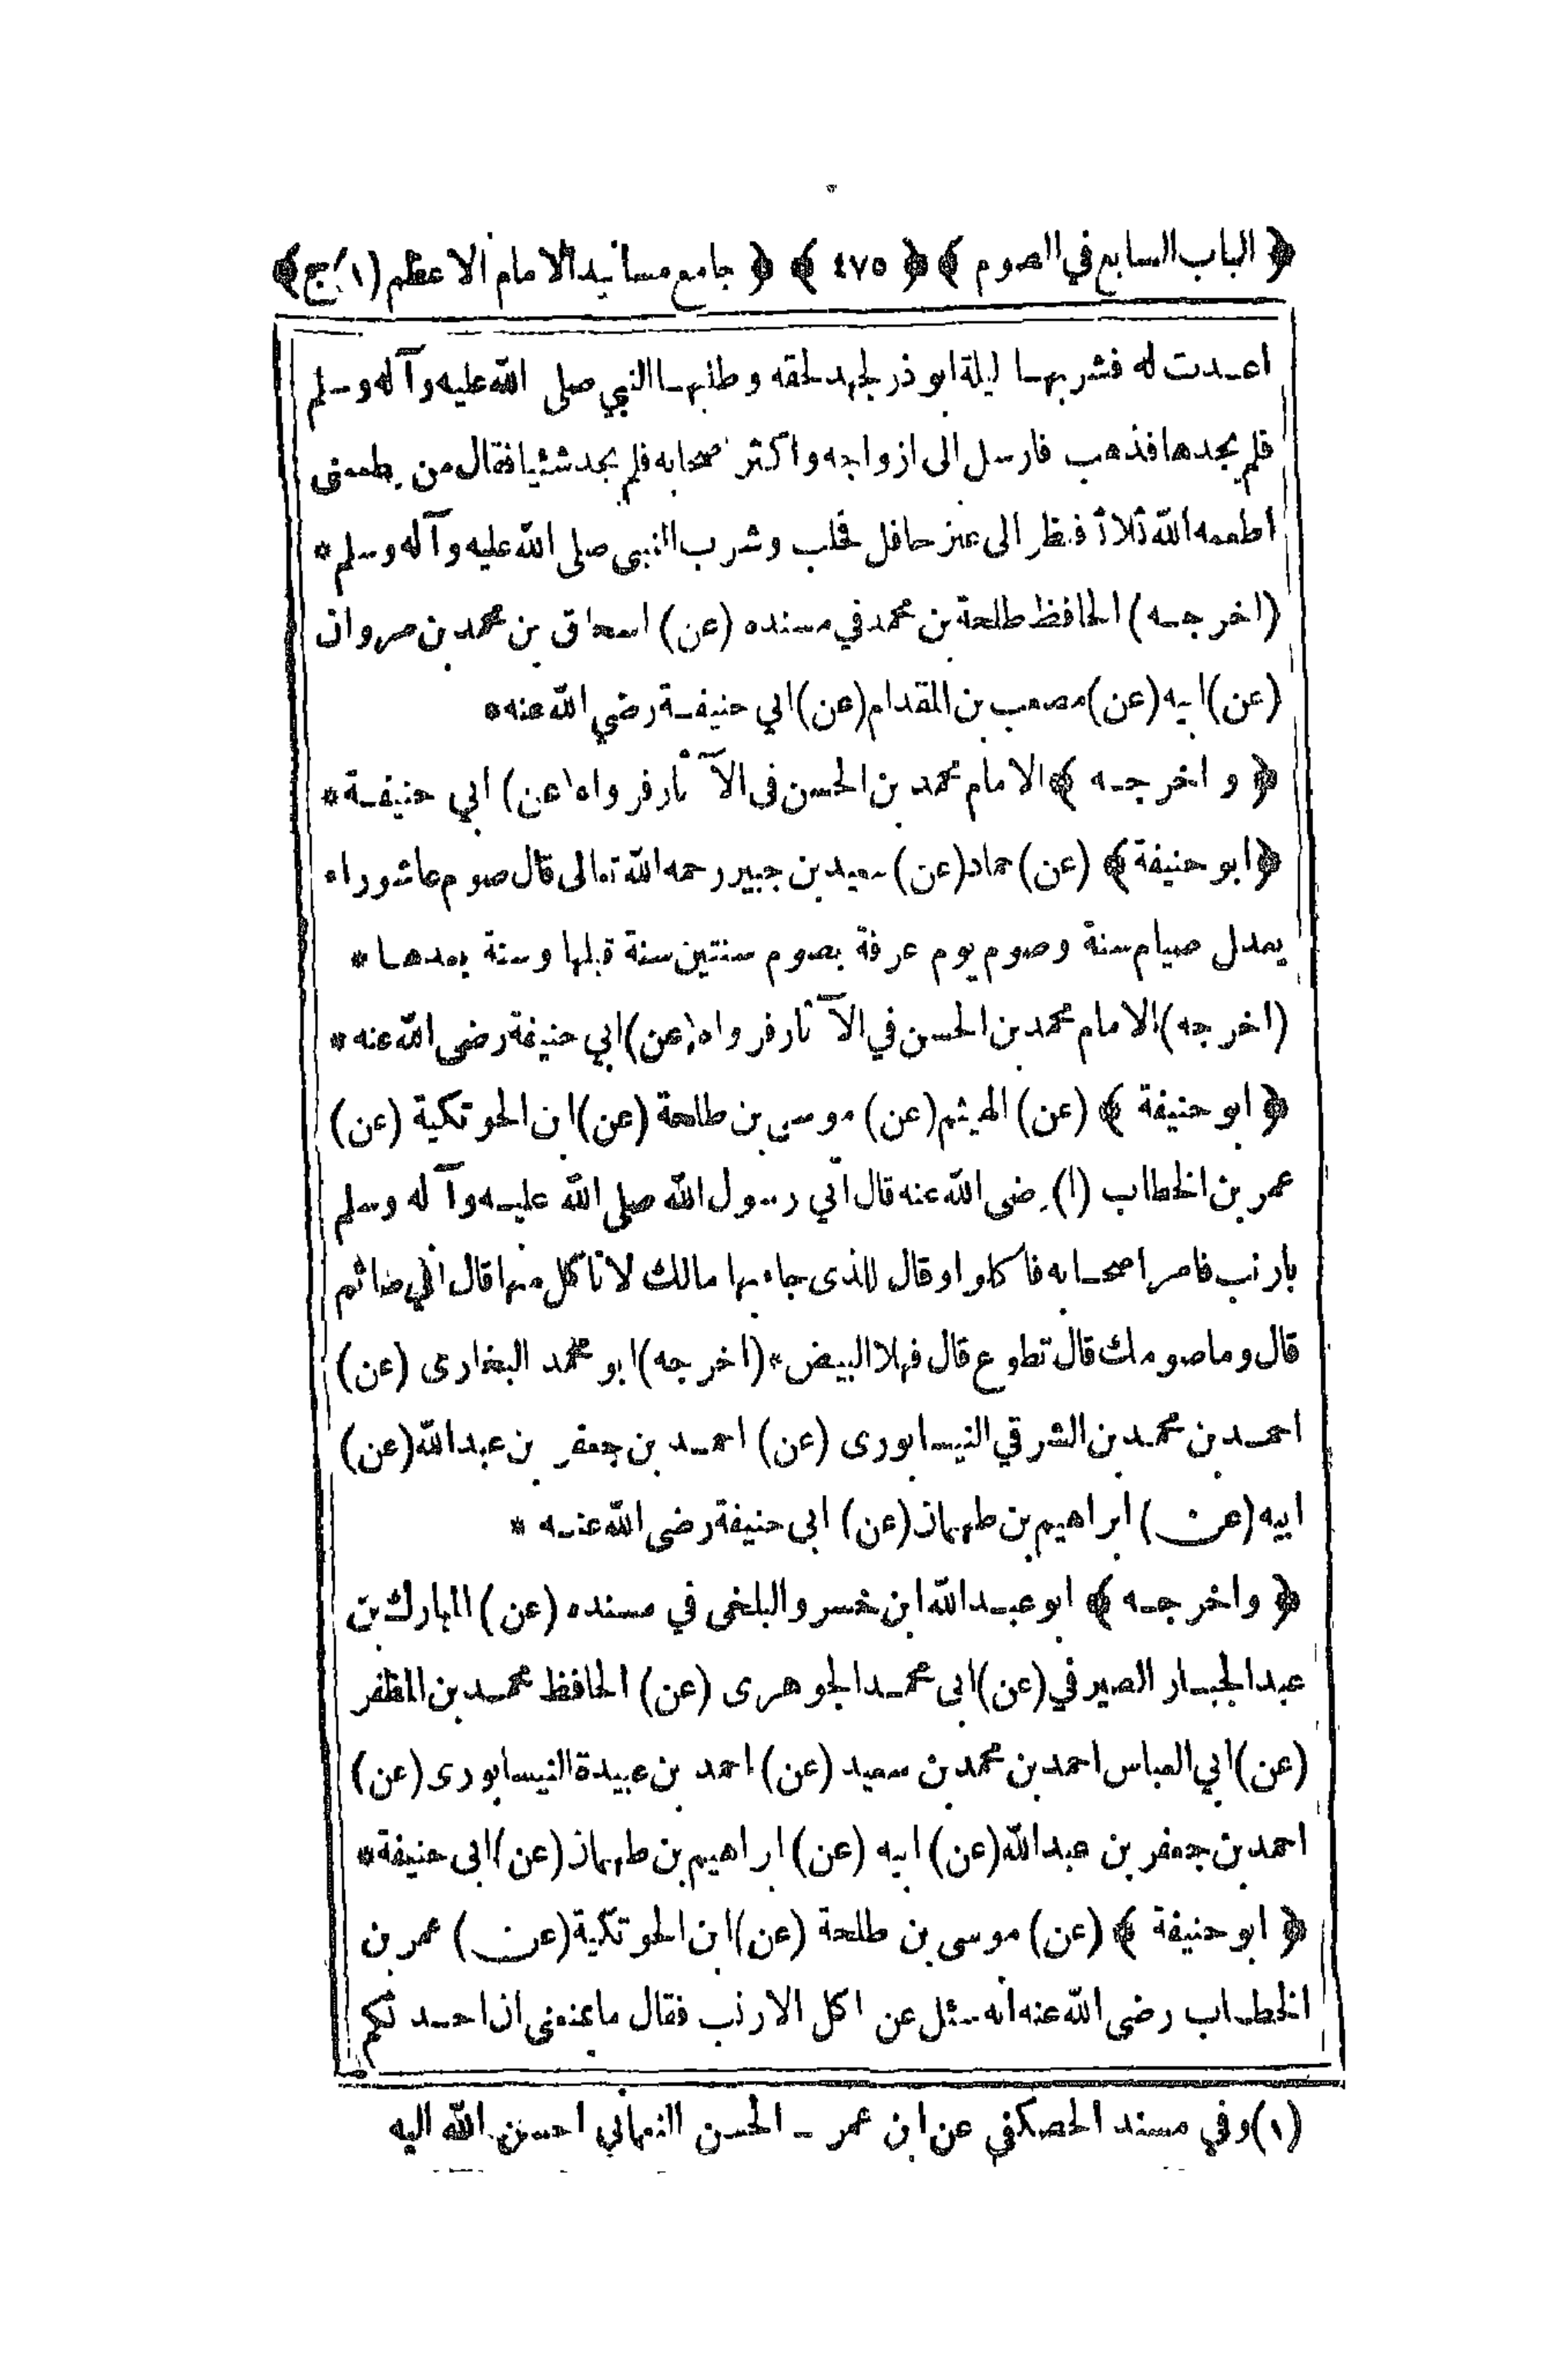 ﴿ الباب السابع في الصوم ﴾ ﴿ ٤٧٥ ﴾ ﴿ جامع مسانيد الامام الاعظم (١/ج) ﴾
اعدت له فشربها ليلة ابو ذر لجهد لحقه وطلبها النبي صلى الله عليه وآله وسلم
فلم يجدها فذهب فارسل الى ازواجه واكثر اصحابه فلم يجد شئيا فقال من يطعمنى
اطعمه الله ثلاثا فنظر الى عنز حافل فحلب وشرب النبى صلى الله عليه وآله وسلم *
(اخرجه) الحافظ طلحة بن محمد في مسنده (عن) اسحاق بن محمد بن مروان
(عن) ابيه (عن) مصعب بن المقدام (عن) ابي حنيفة رضي الله عنه *
﴿ و اخرجه ﴾ الامام محمد بن الحسن فى الآثار فرواه (عن) ابي حنيفة *
﴿ ابو حنيفة ﴾ (عن) حماد (عن) سعيد بن جبير رحمه الله تعالى قال صوم عاشوراء
يعدل صيام سنة وصوم يوم عرفة بصوم سنتين سنة قبلها وسنة بعدها *
(اخرجه) الامام محمد بن الحسن في الآثار فرواه (عن) ابي حنيفة رضى الله عنه *
﴿ ابو حنيفة ﴾ (عن) الهيثم (عن) موسى بن طلحة (عن) ابن الحوتكية (عن)
عمر بن الخطاب (١) رضى الله عنه قال اتي رسول الله صلى الله عليه وآله وسلم
بارنب فامر اصحابه فاكلوا وقال للذى جاء بها مالك لا تأكل منها قال اني صائم
قال وما صومك قال تطوع قال فهلا البيض * (اخرجه) ابو محمد البخارى (عن)
احمد بن محمد بن الشرقي النيسابورى (عن) احمد بن جعفر بن عبد الله (عن)
ابيه (عن) ابراهيم بن طهمان (عن) ابى حنيفة رضى الله عنه *
﴿ واخرجه ﴾ ابو عبد الله ابن خسرو البلخى في مسنده (عن) المبارك بن
عبد الجبار الصيرفي (عن) ابى محمد الجوهرى (عن) الحافظ محمد بن المظفر
(عن) ابي العباس احمد بن محمد بن سعيد (عن) احمد بن عبيدة النيسابورى (عن)
احمد بن جعفر بن عبد الله (عن) ابيه (عن) ابراهيم بن طهمان (عن) ابى حنيفة *
﴿ ابو حنيفة ﴾ (عن) موسى بن طلحة (عن) ابن الحوتكية (عن) عمر بن
الخطاب رضى الله عنه انه سئل عن اكل الارنب فقال ما يمنعنى ان احدثكم
(١) وفي مسند الحصكفي عن ابن عمر - الحسن النعماني احسن الله اليه